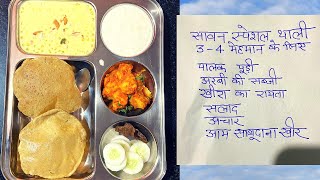 सावन स्पेशल थाली
3-4 मेहमान के लिए
पालक पूड़ी
अरबी की सब्जी
खीरा का रायता
सलाद
अचार
आम साबूदाना खीर